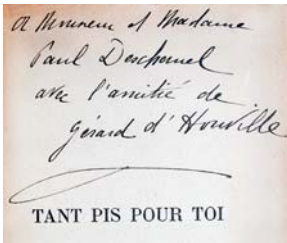 A Monsieur et Madame
Paul Deschanel
avec l'amitié de
Gérard d'Houville
TANT PIS POUR TOI